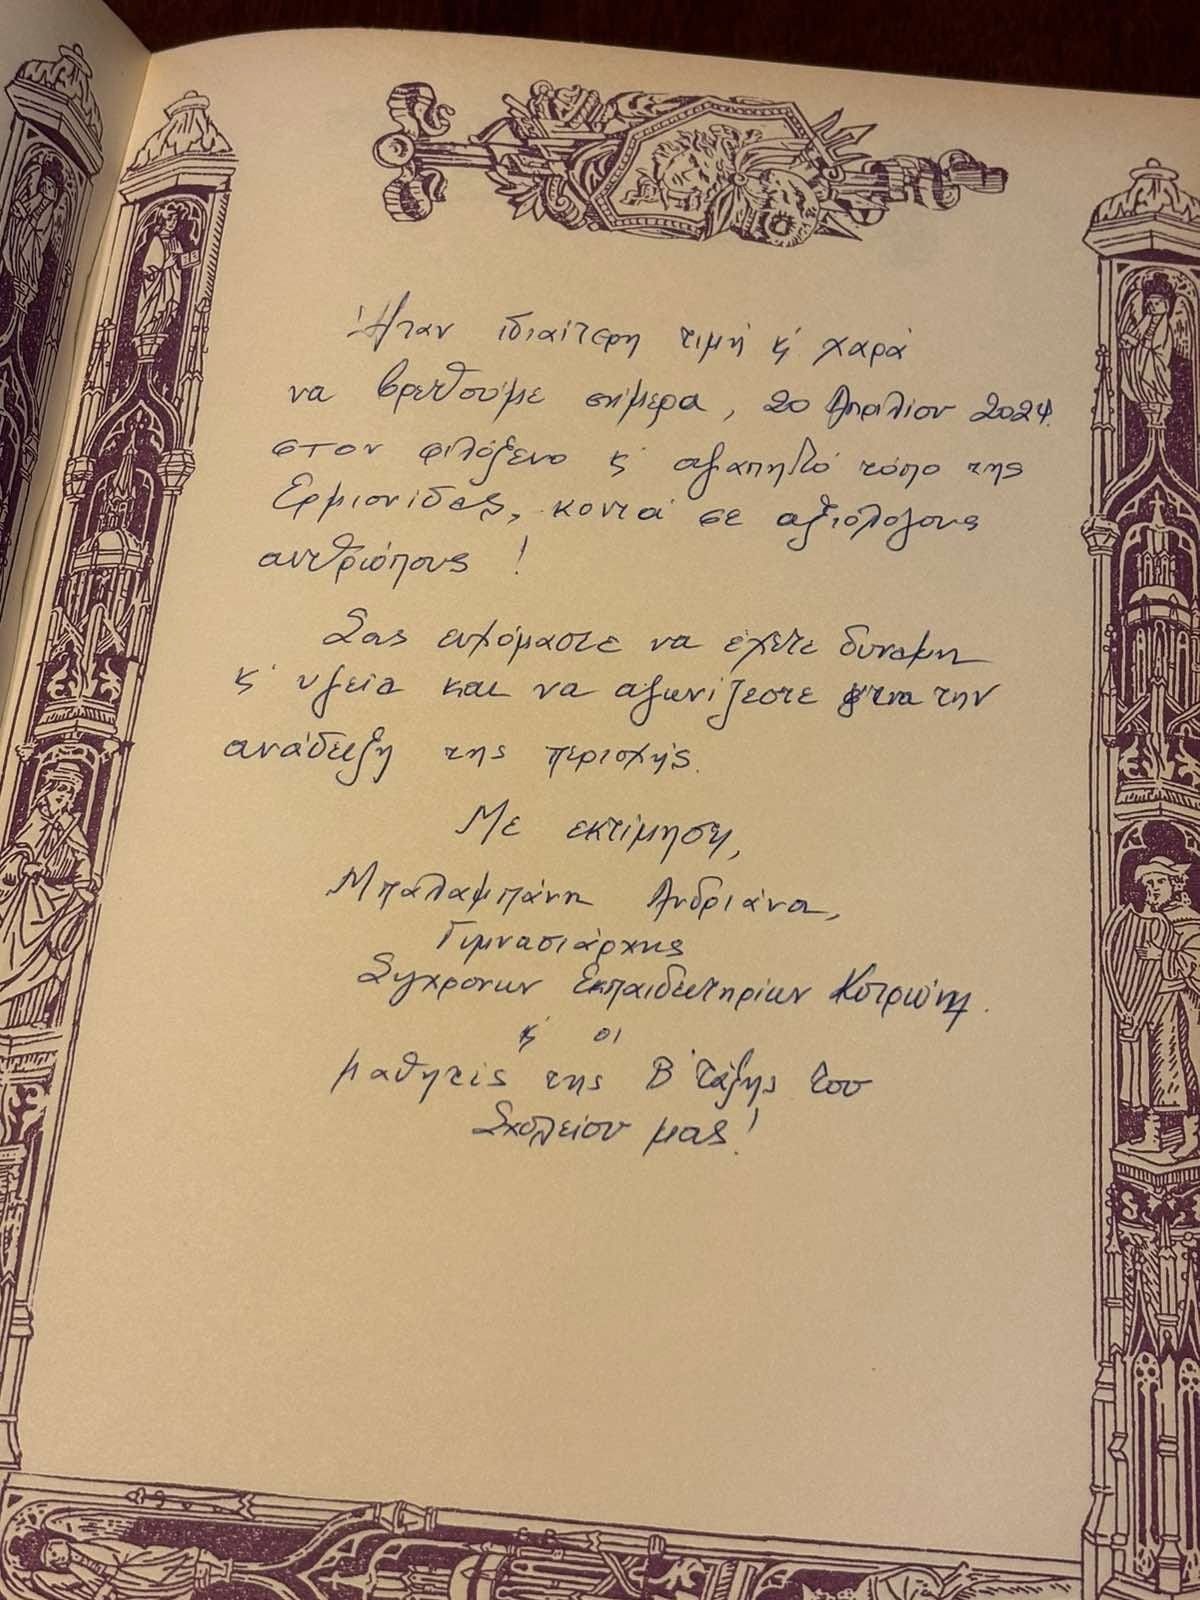 Ήταν ιδιαίτερη τιμή κ' χαρά
να βρεθούμε σήμερα, 20 Απριλίου 2024
στον φιλόξενο κ' αγαπητό τόπο της
Ερμιονίδας, κοντά σε αξιόλογους
ανθρώπους !
Σας ευχόμαστε να έχετε δύναμη
κ' υγεία και να αγωνίζεστε για την
ανάδειξη της περιοχής.
Με εκτίμηση,
Μπαλαμπάνη Ανδριάνα,
Γυμνασιάρχης
Σύγχρονων Εκπαιδευτηρίων
κ' οι
μαθητές της Β' τάξης του
Σχολείου μας!